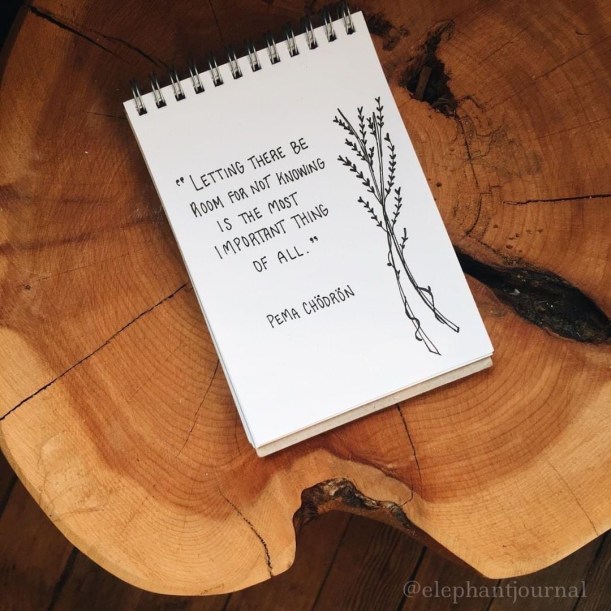 "LETTING THERE BE
ROOM FOR NOT KNOWING
IS THE MOST
IMPORTANT THING
OF ALL."
PEMA CHÖDRÖN
@elephantjournal